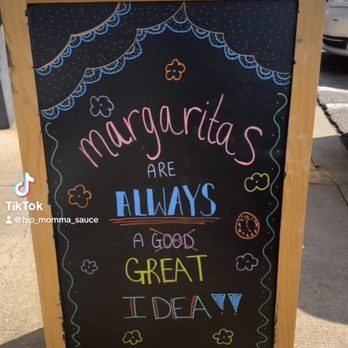 margaritas
ARE
ALWAYS
A GOOD
GREAT
IDEA!!
TikTok
@hip_momma_sauce